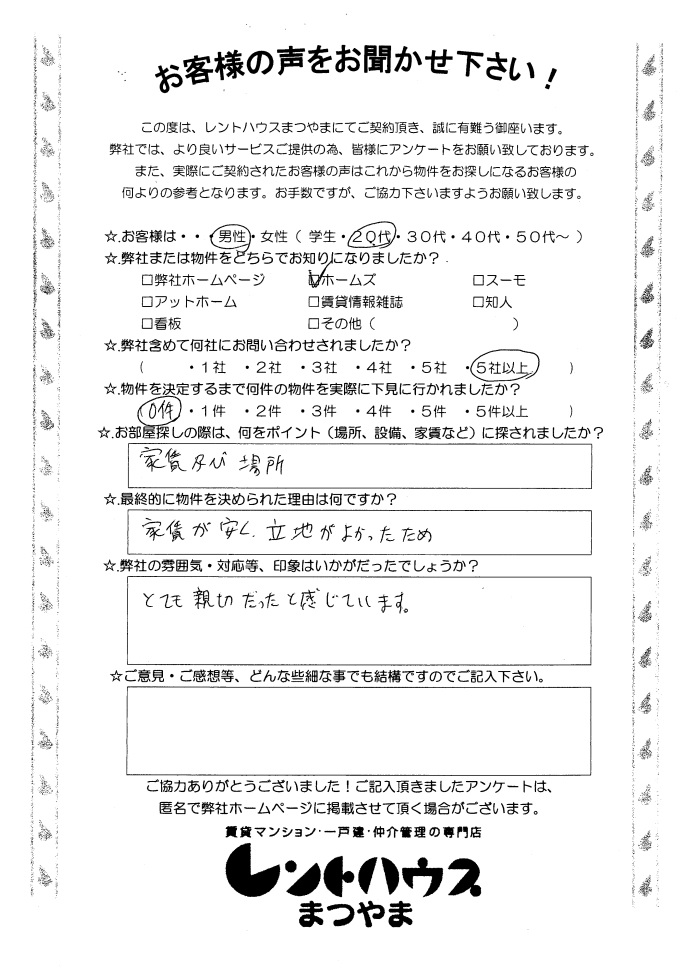 お客様の声をお聞かせ下さい！
この度は、レントハウスまつやまにてご契約頂き、誠に有難う御座います。
弊社では、より良いサービスご提供の為、皆様にアンケートをお願い致しております。
また、実際にご契約されたお客様の声はこれから物件をお探しになるお客様の
何よりの参考となります。お手数ですが、ご協力下さいますようお願い致します。
☆.お客様は・・・男性・女性（ 学生・２０代・３０代・４０代・５０代～ ）
☆.弊社または物件をどちらでお知りになりましたか？
□弊社ホームページ ☑ホームズ □スーモ
□アットホーム □賃貸情報雑誌 □知人
□看板 □その他（ ）
☆.弊社含めて何社にお問い合わせされましたか？
（ ・１社 ・２社 ・３社 ・４社 ・５社 ・５社以上 ）
☆.物件を決定するまで何件の物件を実際に下見に行かれましたか？
（０件 ・１件 ・２件 ・３件 ・４件 ・５件 ・５件以上 ）
☆.お部屋探しの際は、何をポイント（場所、設備、家賃など）に探されましたか？
家賃及び 場所
☆.最終的に物件を決められた理由は何ですか？
家賃が安く、立地がよかったため
☆.弊社の雰囲気・対応等、印象はいかがだったでしょうか？
とても親切だったと感じています。
☆ご意見・ご感想等、どんな些細な事でも結構ですのでご記入下さい。
ご協力ありがとうございました！ご記入頂きましたアンケートは、
匿名で弊社ホームページに掲載させて頂く場合がございます。
賃貸マンション・一戸建・仲介管理の専門店
レントハウス
まつやま